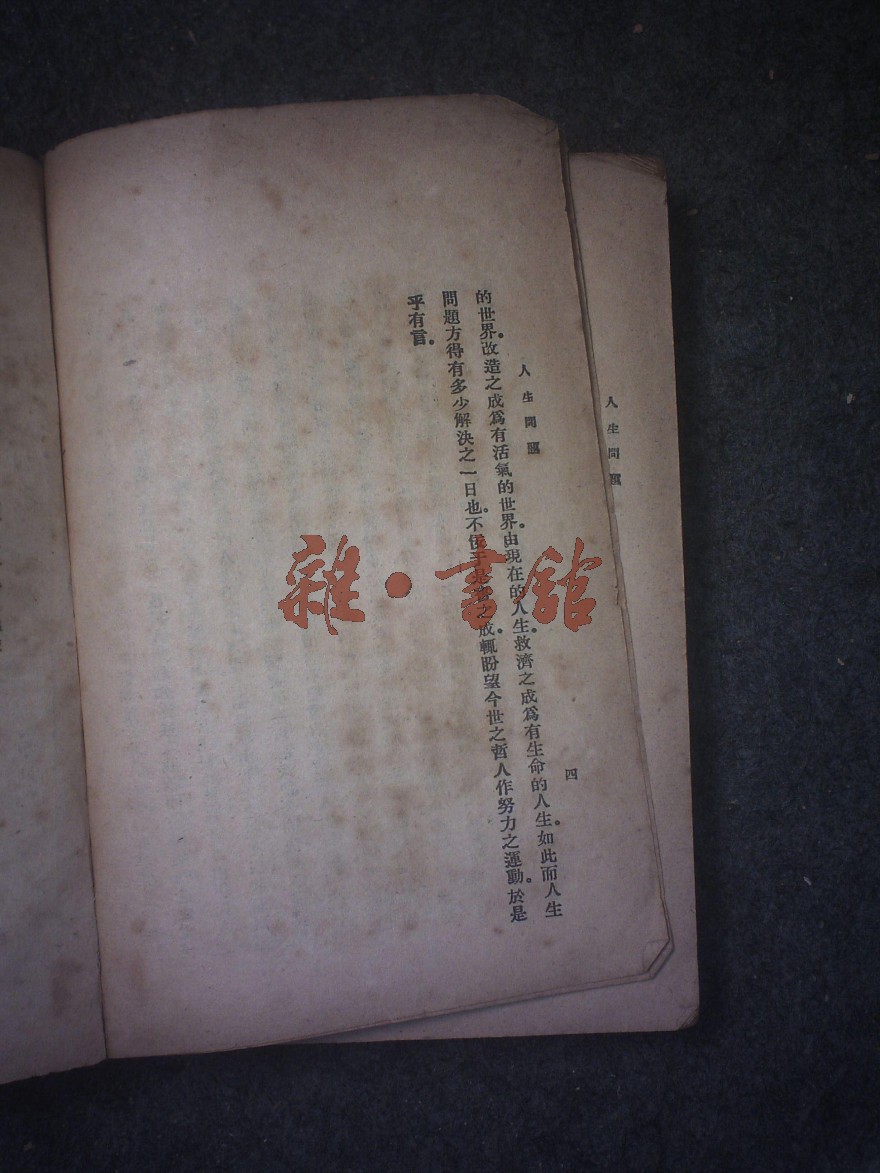 人生問題
四
的世界。改造之成爲有活氣的世界。由現在的人生。救濟之成爲有生命的人生。如此而人生
問題方得有多少解決之一日也。不佞于是之成。輒盼望今世之哲人作努力之運動。於是
乎有言。
人生問題
雜·書館